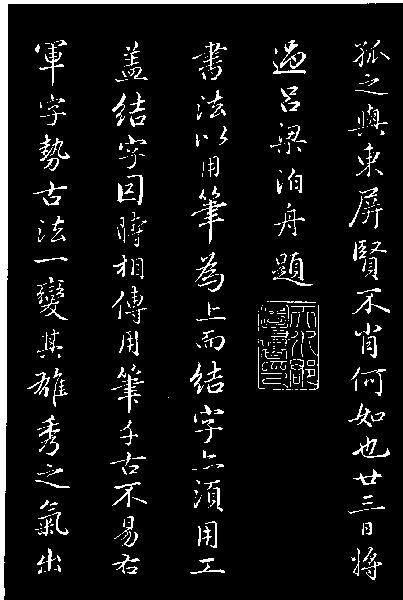 孤之與東屏賢不肖何如也廿三日將
過呂梁泊舟題
書法以用筆為上而結字亦須用工
盖結字因時相傳用筆千古不易右
軍字勢古法一變其雄秀之氣出